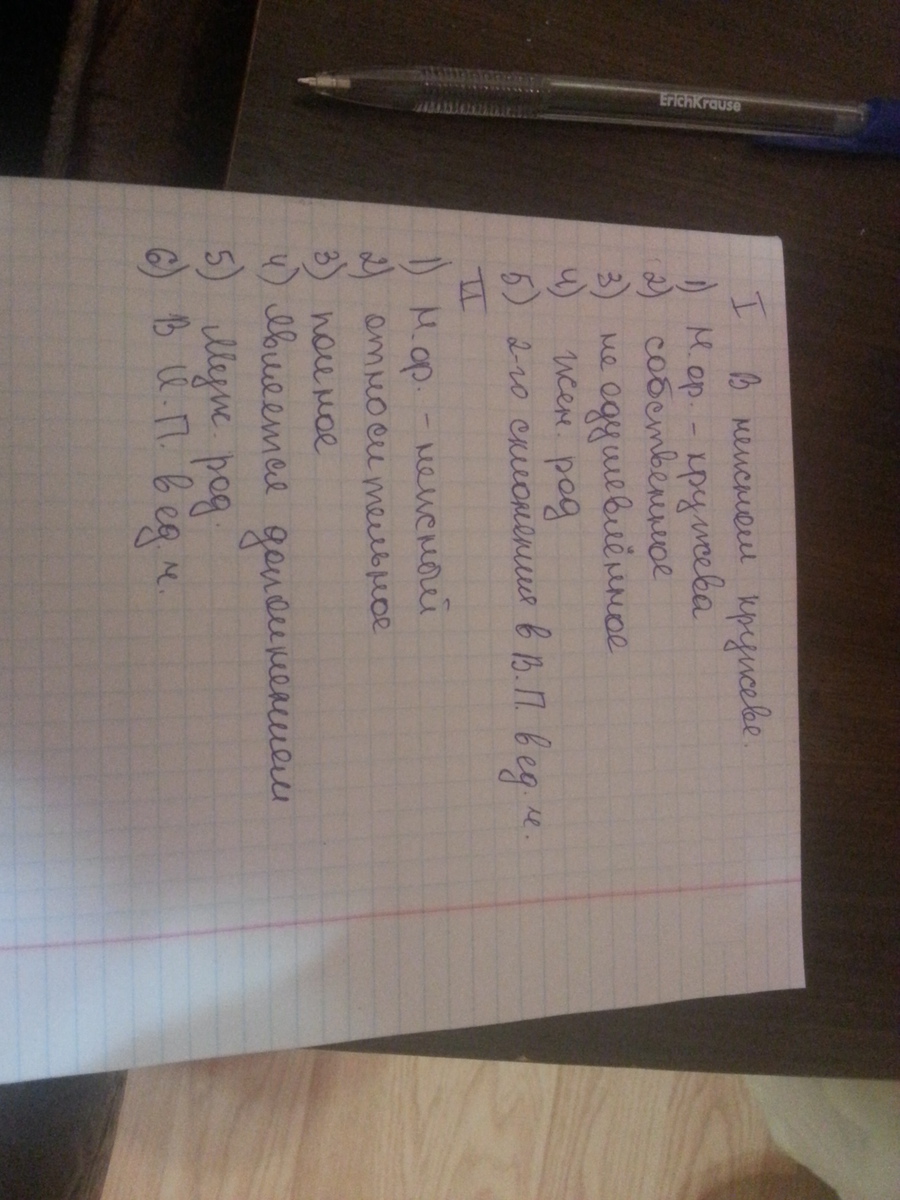 ErichKrause
I В неистом кружеве.
1) Н.ф. - кружева
2) собственное
3) не одушевлённое
4) жен. род
5) 2-го склонения в В.П. в ед. ч.
II
1) Н.ф. - неистый
2) относительное
3) полное
4) является дополнением
5) Муж. род.
6) В И.П. в ед. ч.